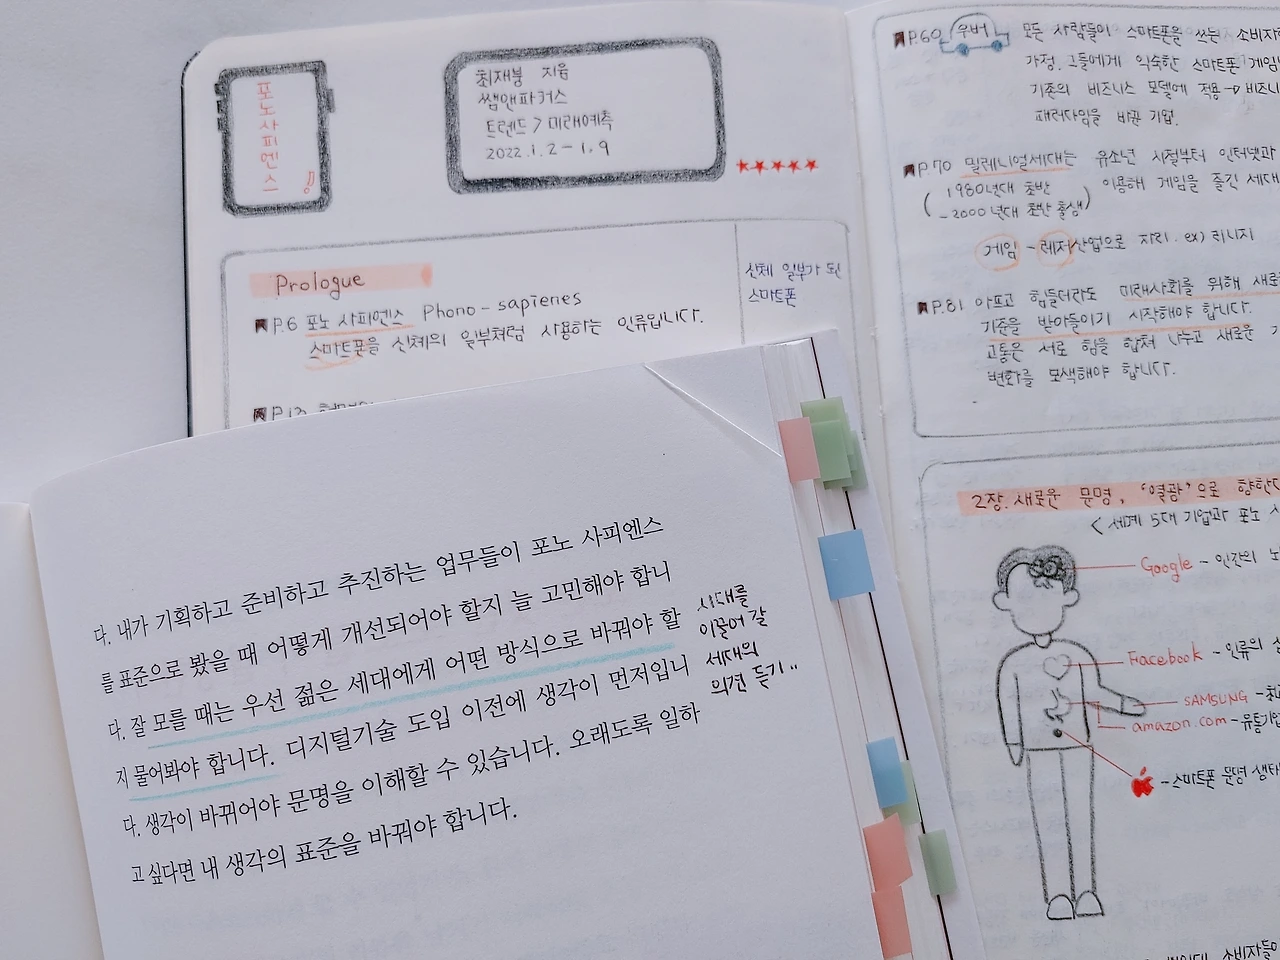 포노사피엔스!!
최재붕 지음
쌤앤파커스
트렌드 > 미래예측
2022.1.2 - 1.9
★★★★★
Prologue
P.6 포노 사피엔스 Phono-sapienes
스마트폰을 신체의 일부처럼 사용하는 인류입니다.
신체 일부가 된
스마트폰
P.13
P.60 우버 모든 사람들이 스마트폰을 쓰는
가정. 그들에게 익숙한 스마트폰
기존의 비즈니스 모델에 적용→
패러다임을 바꾼 기업.
P.70 밀레니얼세대는 유소년 시절부터 인터넷과
(1980년대 초반
-2000년대 초반 출생)
이용해 게임을 즐긴 세대
게임 - 레저산업으로 자리. ex) 리니지
P.81 아프고 힘들더라도 미래사회를 위해
기준을 받아들이기 시작해야 합니다.
고통은 서로 힘을 합쳐 나누고 새로운
변화를 모색해야 합니다.
2장. 새로운 문명, '열광'으로
<세계 5대 기업과 포노
Google - 인간의
Facebook - 인류의
SAMSUNG
amazon.com - 유통기업
- 스마트폰 문명
다. 내가 기획하고 준비하고 추진하는 업무들이 포노 사피엔스
를 표준으로 봤을 때 어떻게 개선되어야 할지 늘 고민해야 합니
다. 잘 모를 때는 우선 젊은 세대에게 어떤 방식으로 바꿔야 할
지 물어봐야 합니다. 디지털기술 도입 이전에 생각이 먼저입니
다. 생각이 바뀌어야 문명을 이해할 수 있습니다. 오래도록 일하
고 싶다면 내 생각의 표준을 바꿔야 합니다.
시대를
이끌어 갈
세대의
의견 듣기..